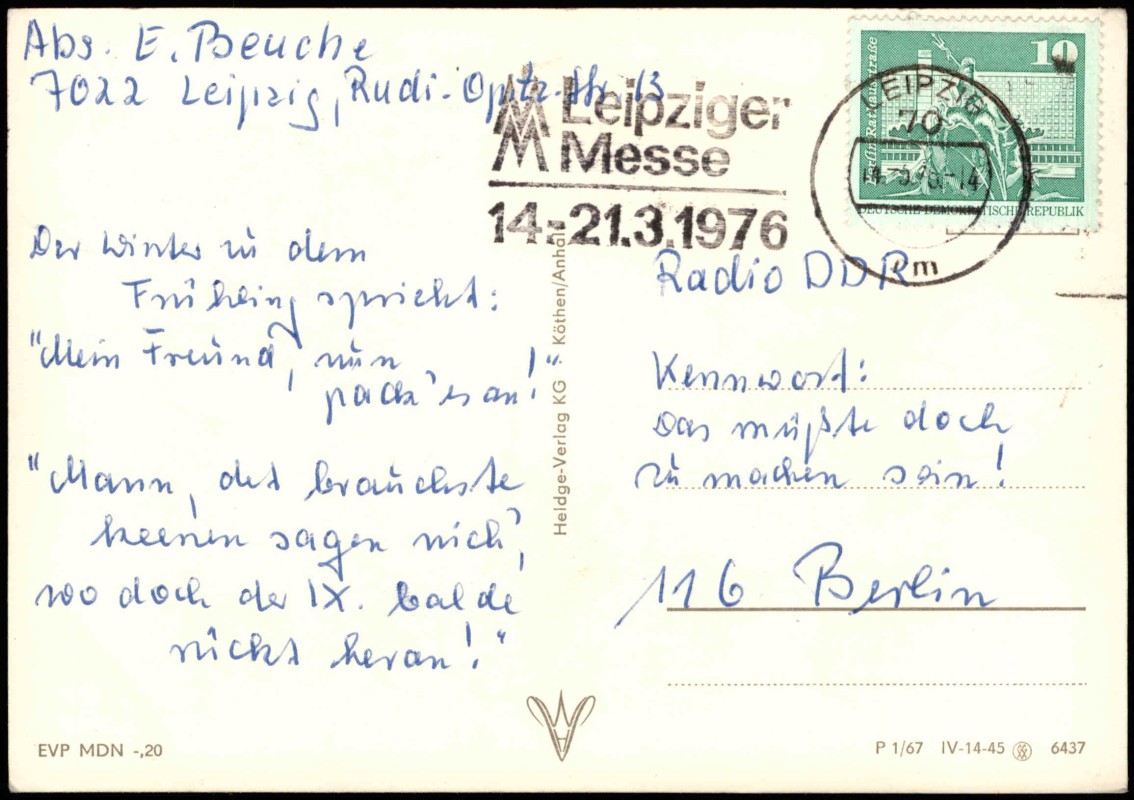 Abs. E. Beuche
7022 Leipzig, Rudi-Opitz-Str. 13
Leipziger
Messe
14.-21.3.1976
10
Berlin, Rathausstraße
DEUTSCHE DEMOKRATISCHE REPUBLIK
LEIPZIG
70
um
Der Winter zu dem
Frühling spricht:
"Mein Freund, nun
pack' es an!"
"Mann, det brauchste
keenen sagen nich',
wo doch der IX. balde
rückt heran!"
Heldge-Verlag KG · Köthen/Anhalt
Radio DDR
Kennwort:
Das müßte doch
zu machen sein!
116 Berlin
EVP MDN -,20
P 1/67 IV-14-45 6437